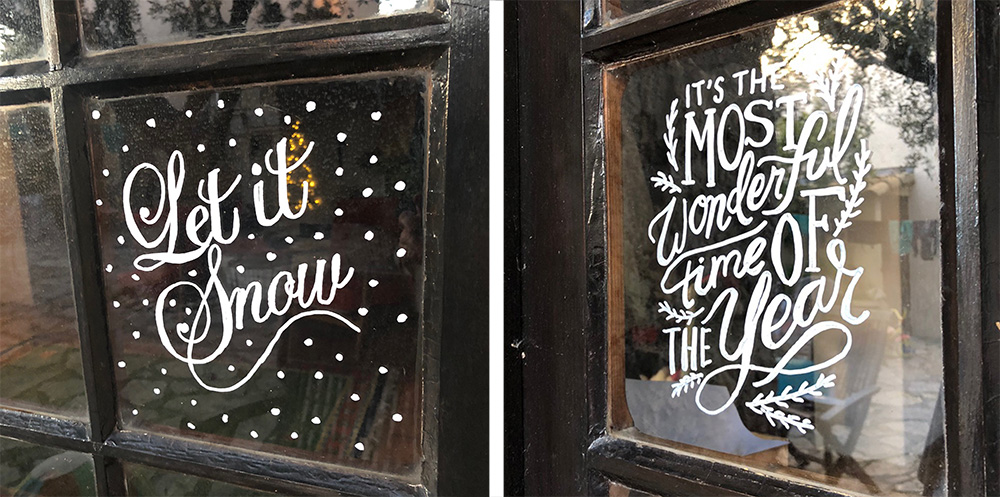 Let it
Snow
IT'S THE
MOST
wonderful
time OF
THE Year